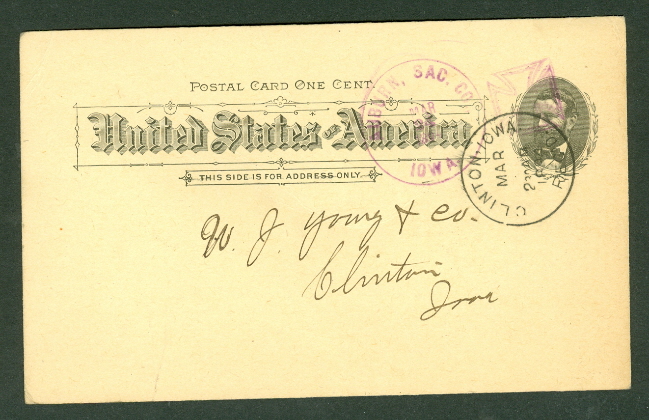 POSTAL CARD ONE CENT
United States of America
THIS SIDE IS FOR ADDRESS ONLY.
AUBURN, SAC. CO.
MAR
IOWA
CLINTON IOWA
MAR
REC'D
W. J. Young & Co.
Clinton
Iowa